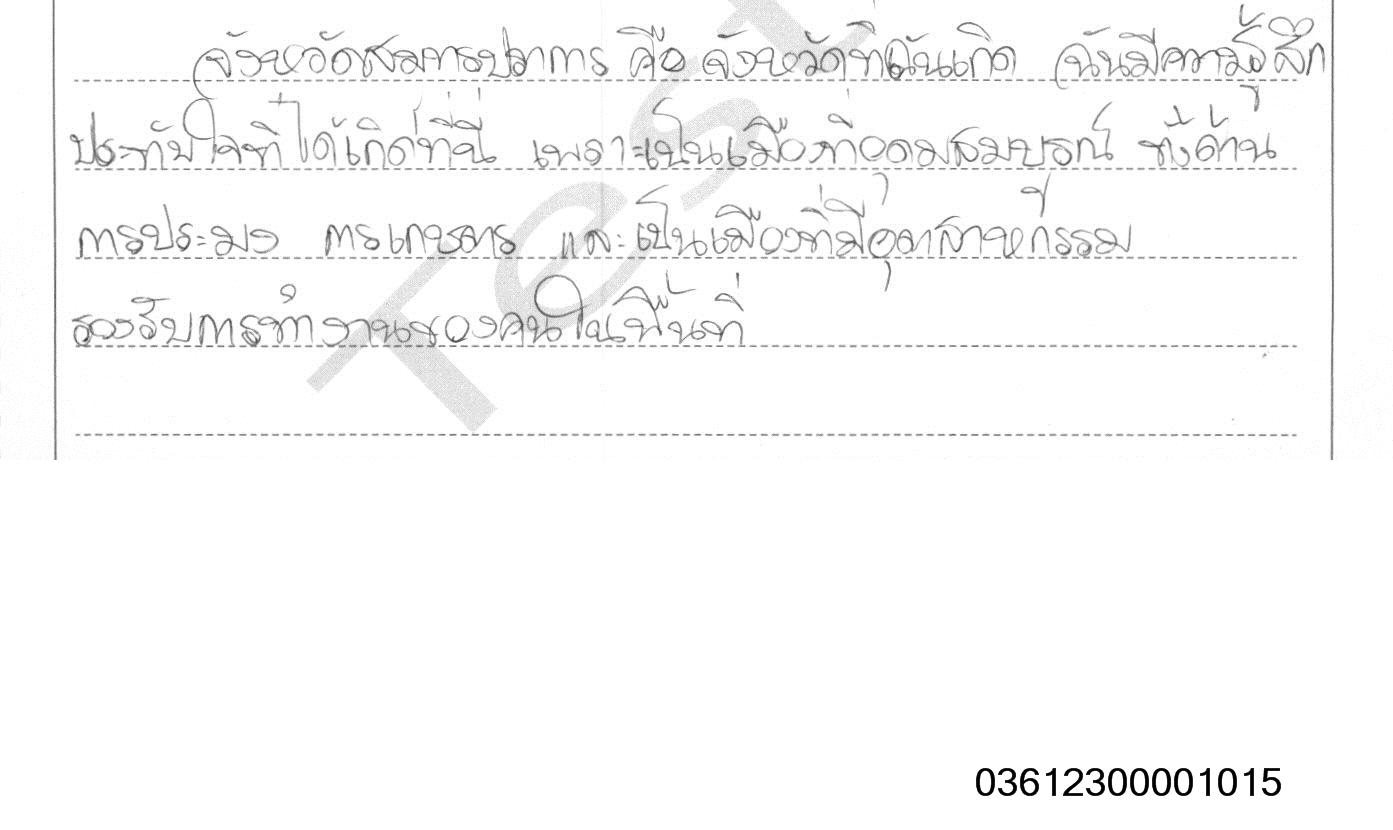 จังหวัดสมุทรปราการ คือ จังหวัดที่ฉันเกิด ฉันมีความรู้สึก
ประทับใจที่ได้เกิดที่นี่ เพราะเป็นเมืองที่อุดมสมบูรณ์ ทั้งด้าน
การประมง การเกษตร และเป็นเมืองที่มีอุตสาหกรรม
รองรับการทำงานของคนในพื้นที่
Test
03612300001015